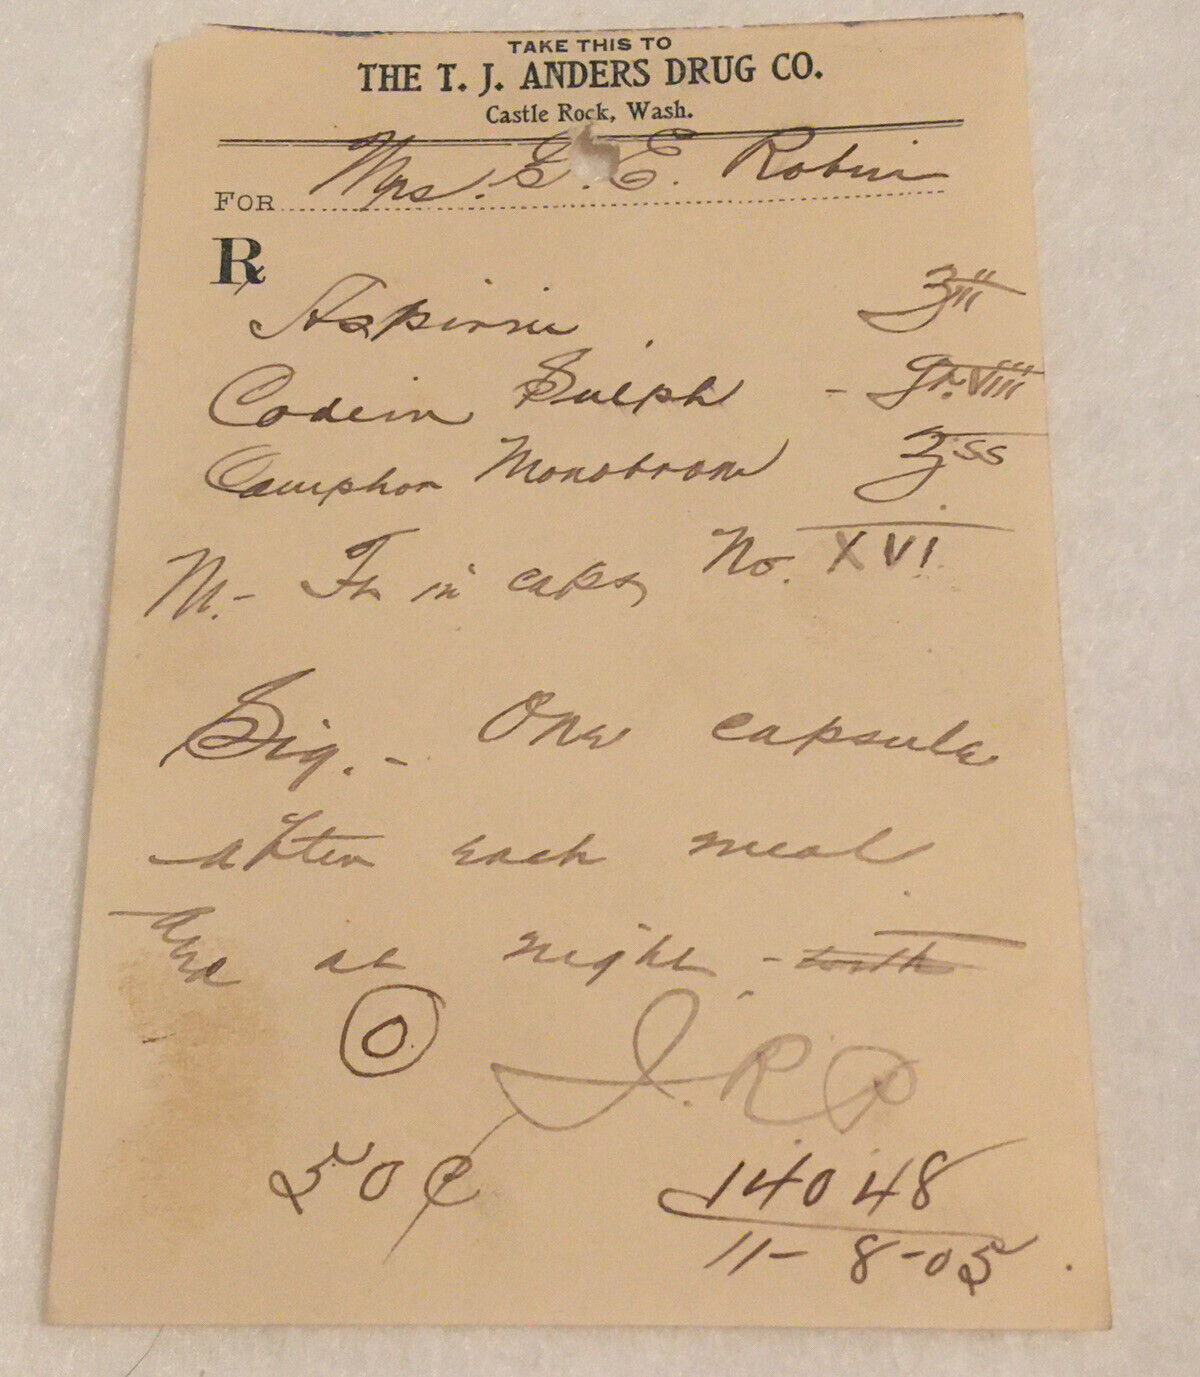 TAKE THIS TO
THE T. J. ANDERS DRUG CO.
Castle Rock, Wash.
FOR Mrs. G. E. Robin
℞
Aspirin ʒii
Codein Sulph - gr. viii
Camphor Monobrom ʒss
M. - Ft in caps, No. XVI
Sig. - One capsule
after each meal
and at night -
O
J. R P
50¢
14048
11-8-05